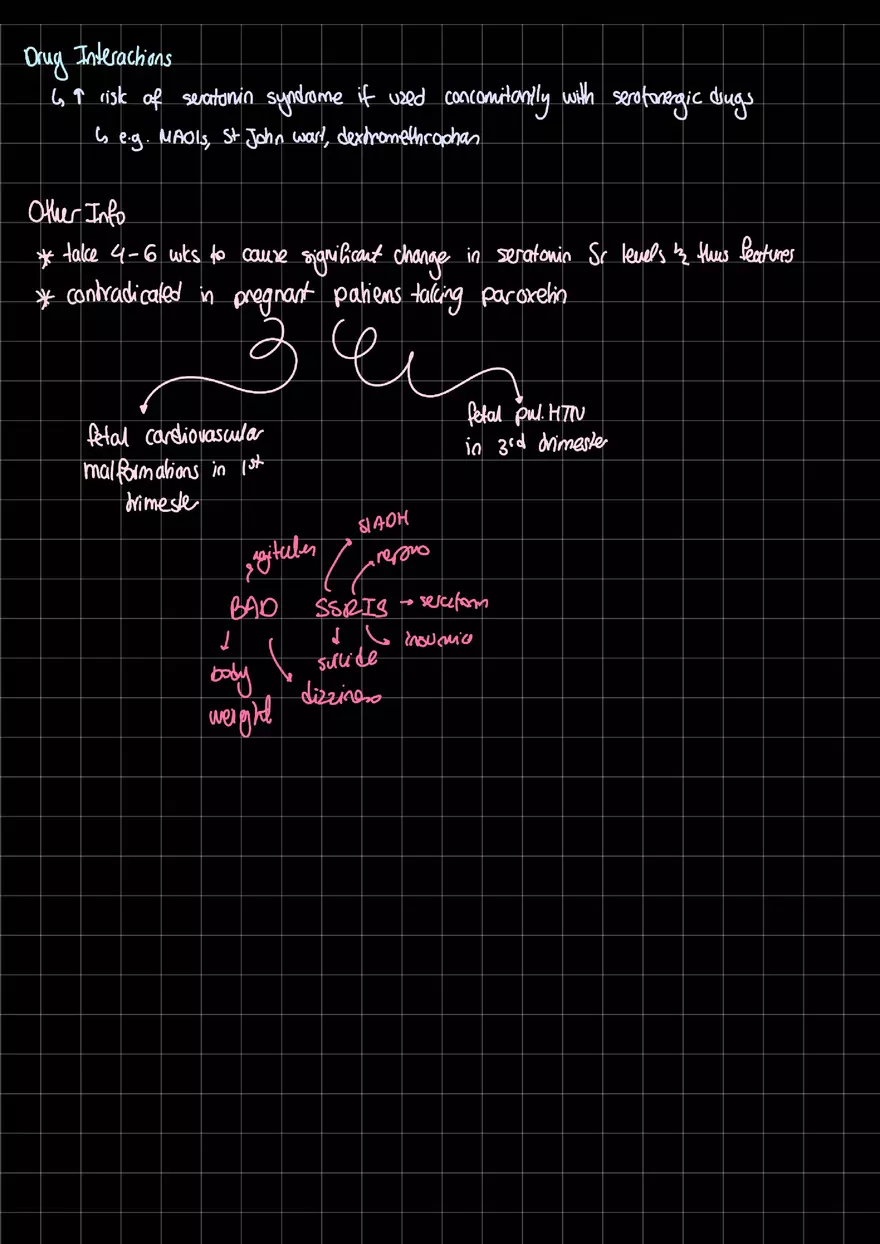 Drug Interactions
↳ ↑ risk of seratonin syndrome if used concomitantly with serotonergic drugs
↳ e.g. MAOIs, St John wort, dextromethrophan
Other Info
* take 4-6 wks to cause significant change in seratonin Sr levels & thus features
* contradicated in pregnant patiens taking paroxetin
fetal pul. HTN
fetal cardiovascular
in 3rd trimester
malformations in 1st
trimeste
SIADH
agitation
repro
BAD SSRIS → seratonin
insomnia
suicide
body
dizziness
weight